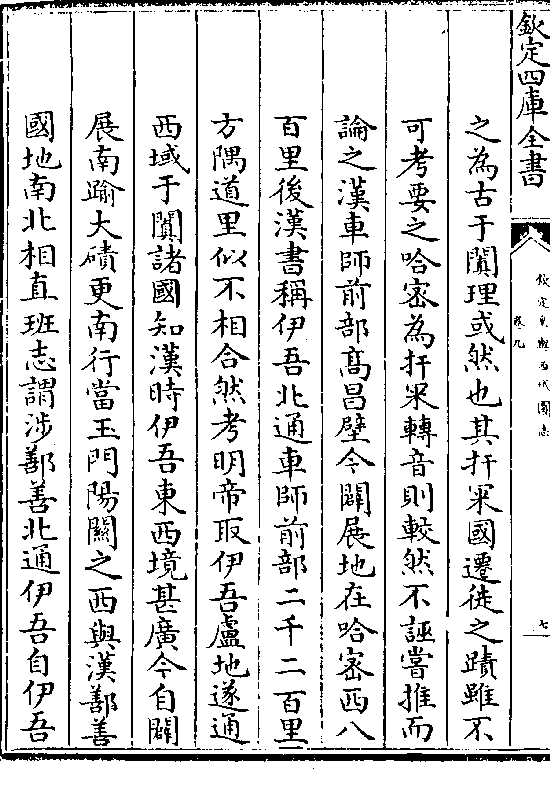 欽定四庫全書
欽定皇輿西域圖志
卷九
七
之為古于闐理或然也其扞罙國遷徙之蹟雖不
可考要之哈密為扞罙轉音則較然不誣嘗推而
論之漢車師前部髙昌壁今闢展地在哈密西八
百里後漢書稱伊吾北通車師前部二千二百里
方隅道里似不相合然考明帝取伊吾盧地遂通
西域于闐諸國知漢時伊吾東西境甚廣今自闢
展南踰大磧更南行當玉門陽闗之西與漢鄯善
國地南北相直班志謂涉鄯善北通伊吾自伊吾